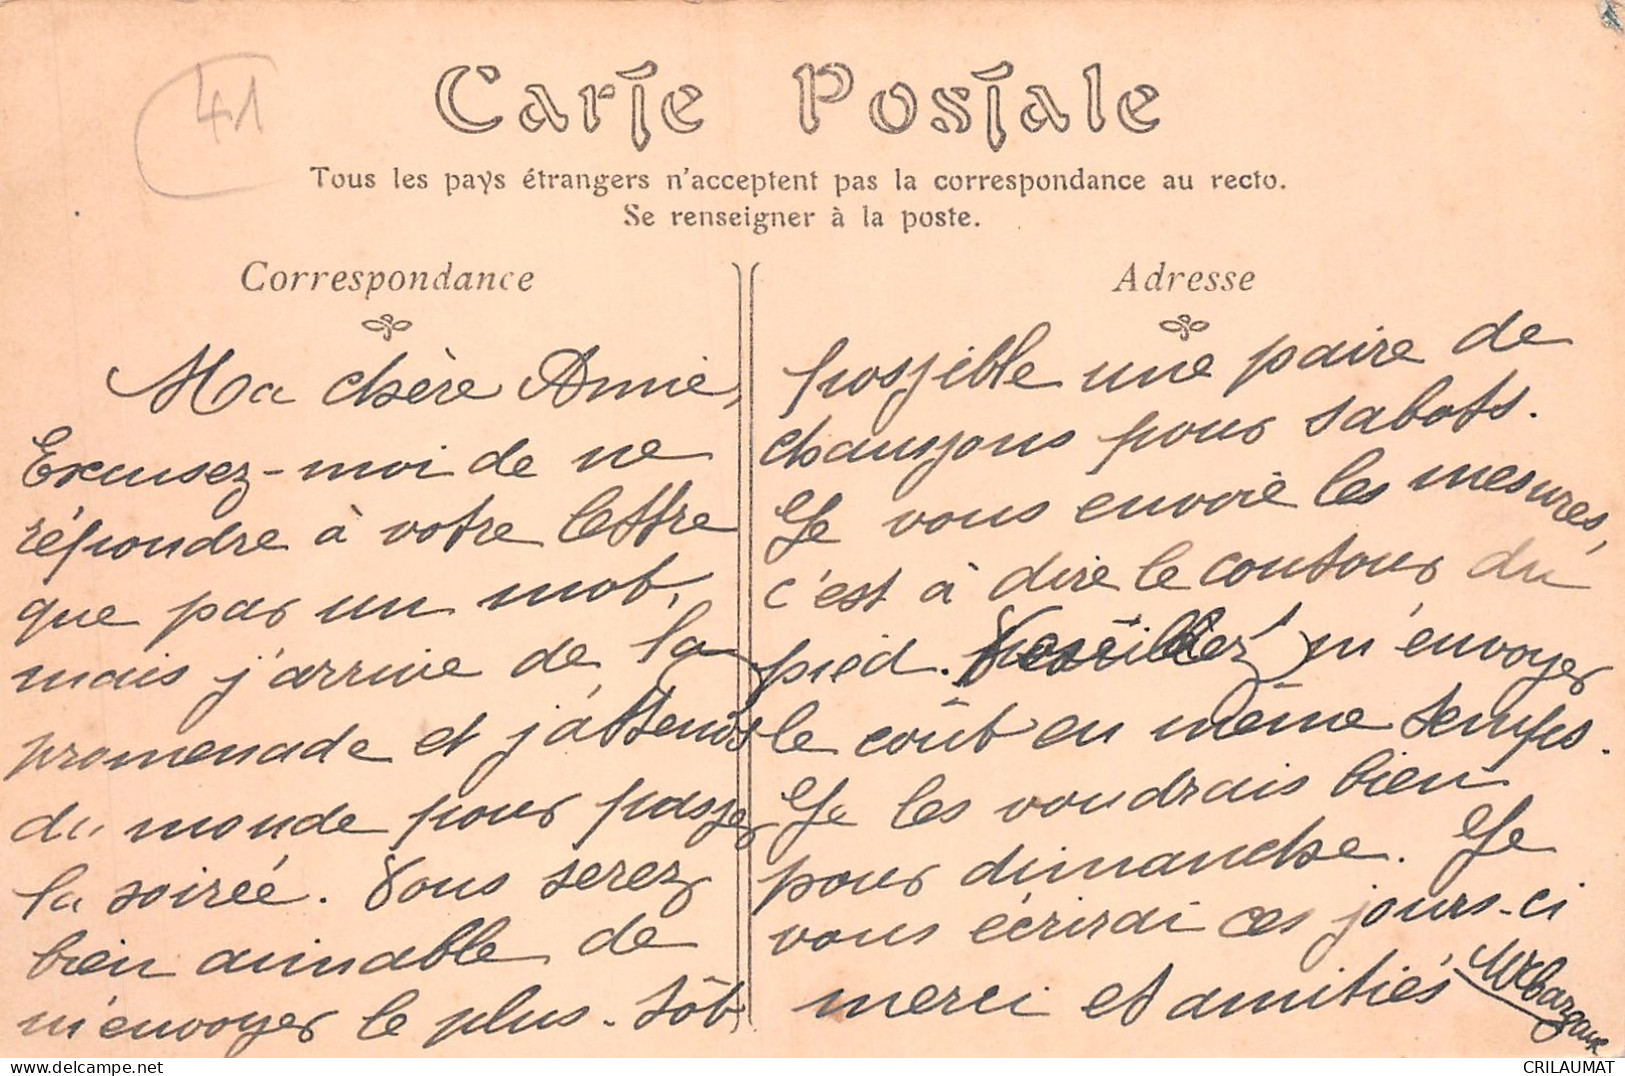 41
Carte Postale
Tous les pays étrangers n'acceptent pas la correspondance au recto.
Se renseigner à la poste.
Correspondance
Ma chère Annie,
Excusez-moi de ne
répondre à votre lettre
que par un mot,
mais j'arrive de la
promenade et j'attends
du monde pour passer
la soirée. Vous serez
bien aimable de
m'envoyer le plus-tôt
Adresse
possible une paire de
chaussons pour sabots.
Je vous envoie les mesures,
c'est à dire le contour du
pied. Veuillez m'envoyer
le coût en même temps.
Je les voudrais bien
pour dimanche. Je
vous écrirai ces jours-ci
merci et amitiés
delcampe.net
CRILAUMAT